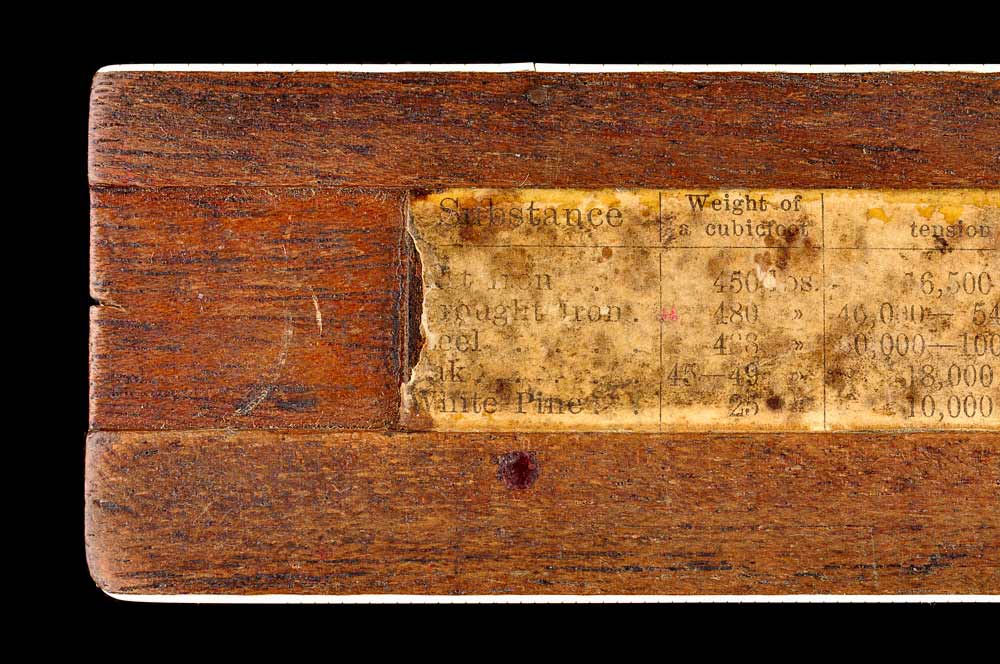 Substance Weight of a cubicfoot tension
Iron 450 lbs. 6,500
rought Iron. 480 » 54
eel 0,000—100
ak 45—49 18,000
White Pine 25 10,000